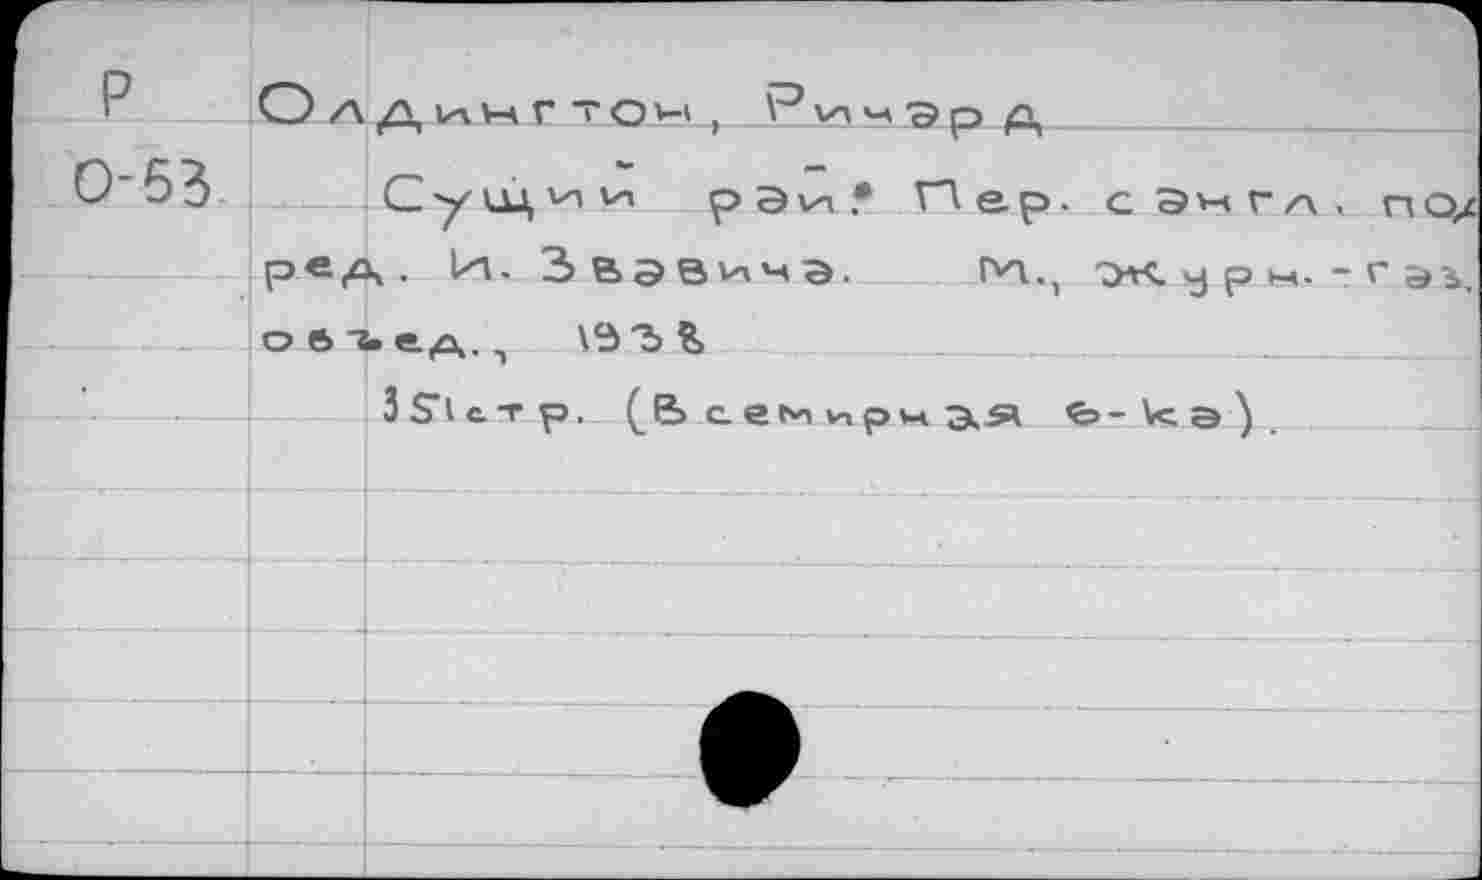 Р Олдингтон, Ричард
О-53 Сущий рай. Пер. с англ. под
ред. И. Звавича. М., Журн.-газ.
объед., 1938
351стр. (Всемирная б-ка).